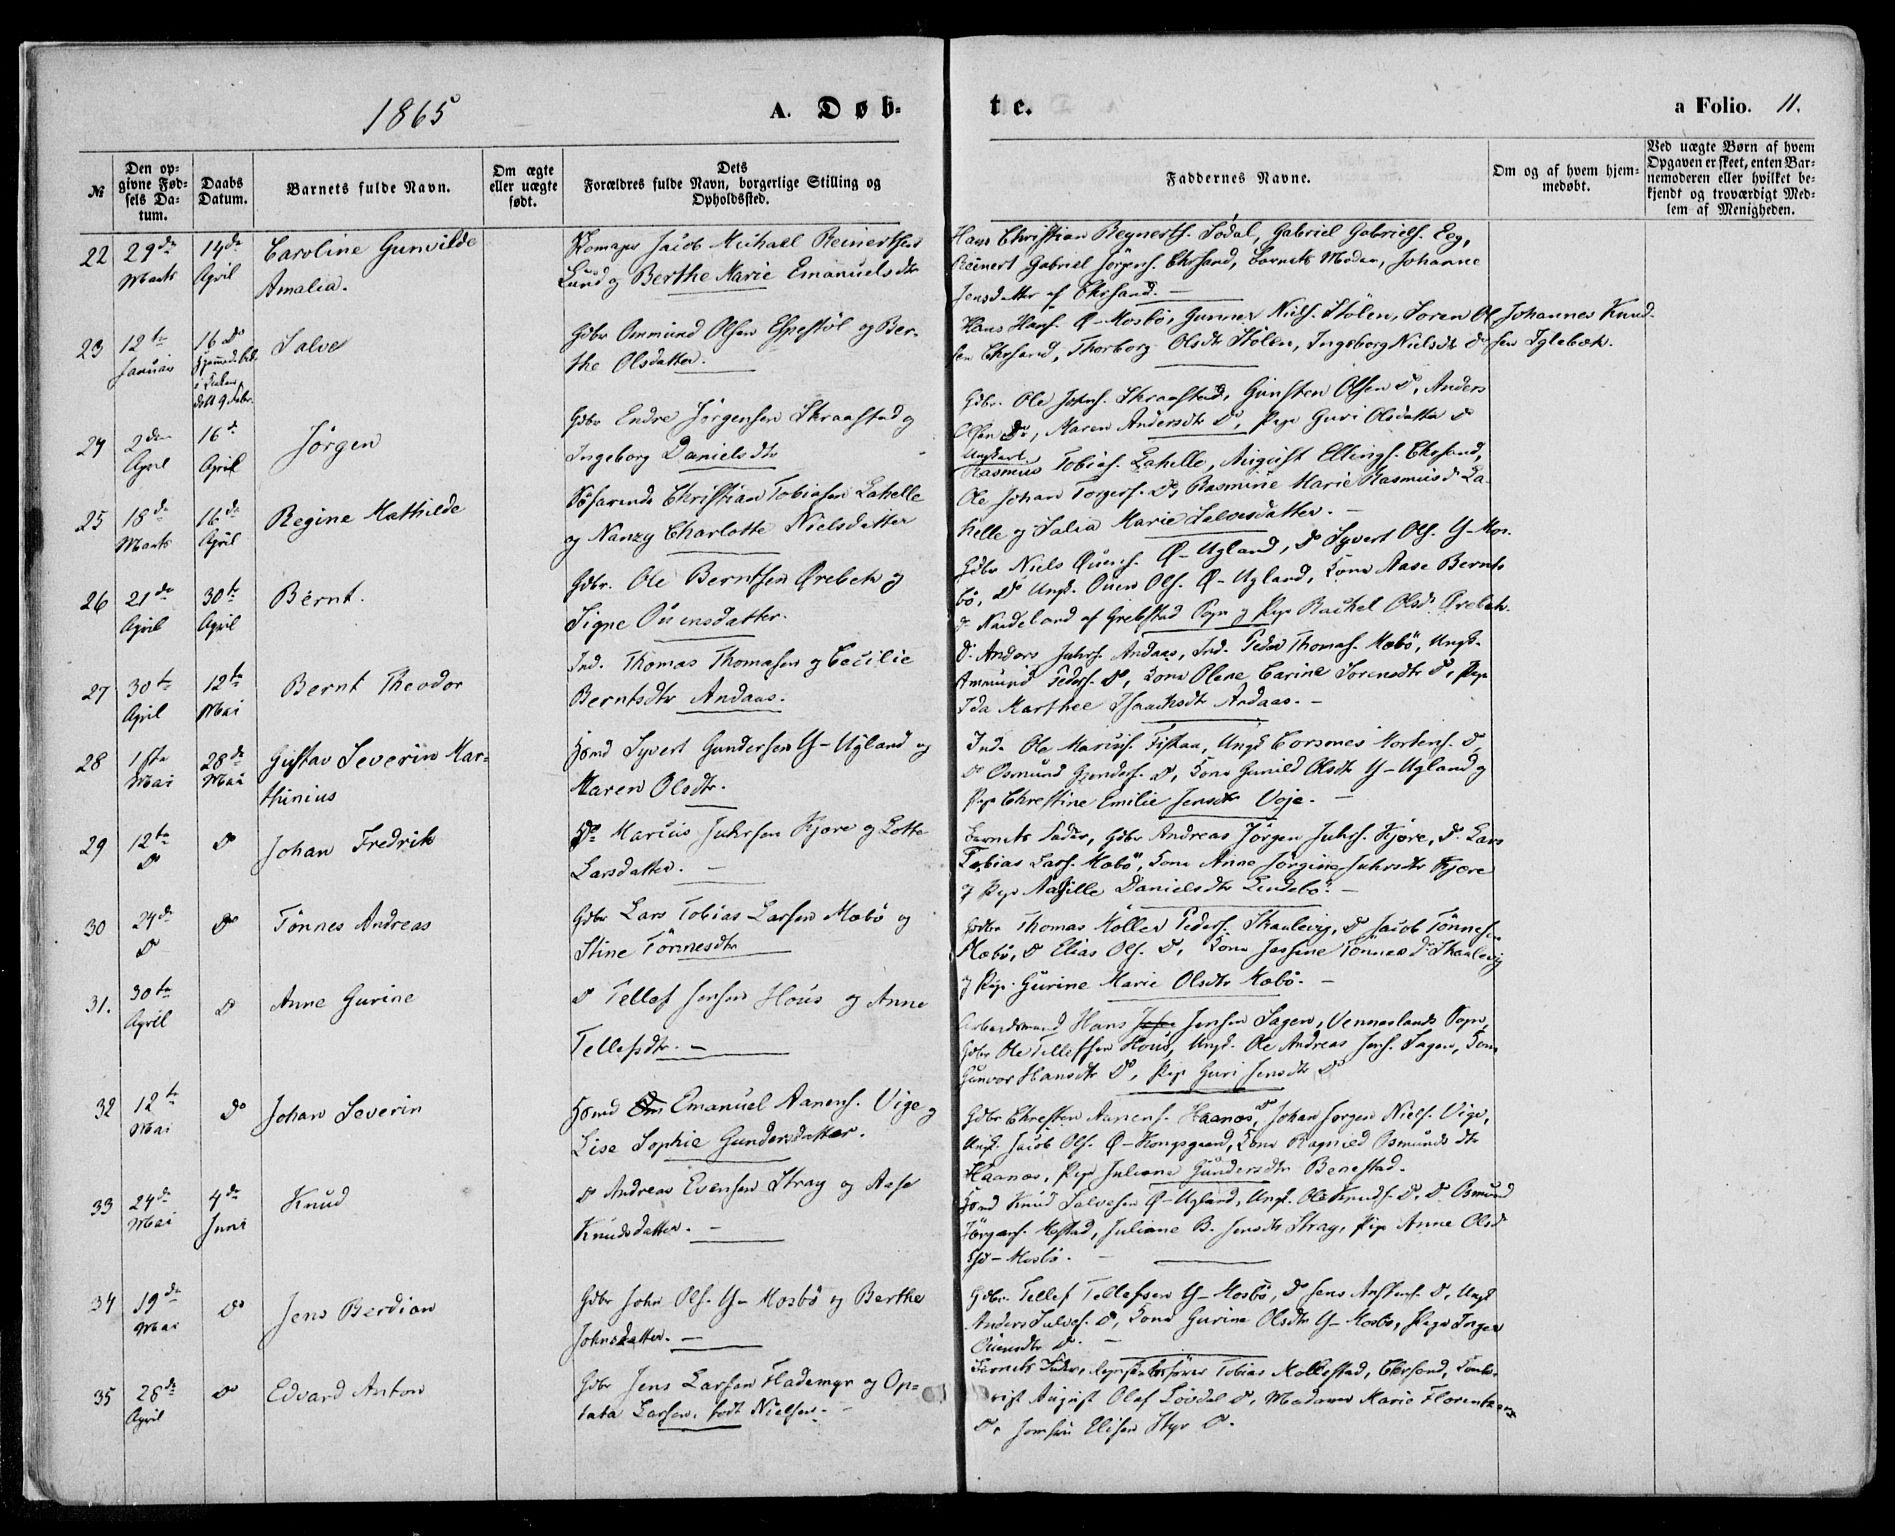 1865
A. Døb-
te.
a Folio. 11.
№
Den op-
givne Fød-
sels Da-
tum.
Daabs
Datum.
Barnets fulde Navn.
Om ægte
eller uægte
født.
Dets
Forældres fulde Navn, borgerlige Stilling og
Opholdssted.
Faddernes Navne.
Om og af hvem hjem-
medøbt.
Ved uægte Børn af hvem
Opgaven er skeet, enten Bar-
nemoderen eller hvilket be-
kjendt og troværdigt Med-
lem af Menigheden.
22
29de
Marts
14de
April
Caroline Gunvilde
Amalia.
Skomager Jacob Michael Reinertsen
Lund og Berthe Marie Emanuelsdtr
Hans Christian Reynerts. Sødal, Gabriel Gabriels. Eeg,
Reinert Gabriel Jørgens. Chrsand, Barnets Moder, Johanne
Jensdatter af Chrsand. —
23
12te
Januar
16 do
Salve
Gdbr Ommund Olsen Espestøl og Ber-
the Olsdatter.
Hans Hans. Ø-Mosbø, Gunner Niels. Stölen, Søren Ol Johannes Knud-
sen Chrsand, Thorborg Olsdtr Stölen, Ingeborg Nielsdtr do sen Iglebæk.
24
2den
April
16de
April
Jørgen
Gdbr Endre Jørgensen Skraastad og
Ingeborg Danielsdtr
Gdbr. Ole Johns. Skraastad, Gunsten Olsen do, Anders
Olsen do, Maren Andersdtr do, Pige Guri Olsdatter do
25
18de
Marts
16de
April
Regine Mathilde
Søfarende Christian Tobiasen Lahelle
og Nanzy Charlotte Nielsdatter
Ungkarl
Rasmus Tobias. Lahelle, August Ellings. Chrsand,
Ole Johan Torgers. do, Rasmine Marie Rasmusd. La-
helle og Salia Marie Salvesdatter. —
26
21de
April
30te
April
Bernt.
Gdbr. Ole Berntsen Ørebek og
Signe Ouensdatter.
Gdbr Niels Ouens. Ø-Ugland, do Syvert Ols. Y-Mos-
bø, do Ungk. Ouen Ols. Ø-Ugland, Kone Aase Bernts
d. Naideland af Grebstad Sogn og Pige Rachel Olsd. Ørebek.
27
30te
April
12te
Mai
Bernt Theodor
Ind. Thomas Thomasen og Cecilie
Berntsdtr Andaas.
do Anders Juhrs. Andaas, Ind. Peder Thomas. Mæbø, Ungk.
Ammund Peders. do, Kone Olene Carine Sørensdtr do, Pige
Ida Marthee Isaachsdtr Andaas. —
28
1ste
Mai
28de
Mai
Gustav Severin Mar-
thinius
Hsmd Syvert Gundersen Y-Ugland og
Maren Olsdtr.
Ind. Ole Marius. Fiskaa, Ungk Corsmes Mortens. do,
do Osmund Gunders. do, Kone Gunild Olsdtr Y-Ugland og
Pige Chrestine Emilie Jensdtr Voje. —
29
12te
do
do
Johan Fredrik
do Marius Juhrsen Kjære og Lotte
Larsdatter. —
Barnets Fader, Gdbr Andreas Jørgen Juhrs. Kjære, do Lars
Tobias Lars. Mæbø, Kone Anne Jørgine Juhrsdtr Kjære
og Pige Nasille Danielsdtr Lindebø. —
30
24de
do
do
Tönnes Andreas
Gdbr Lars Tobias Larsen Mæbø og
Stine Tönnesdtr
Gdbr Thomas Møller Peders. Skaalevig, do Jacob Tönnes.
Mæbø, do Elias Ols. do, Kone Josine Tönnesdr Skaalevig
og Pige Gurine Marie Olsdtr Mæbø. —
31.
30te
April
do
Anne Gurine
do Tellef Jensen Hous og Anne
Tellefsdtr. —
Arbeidsmand Hans Jensen Sagen, Vennerslands Sogn,
Gdbr Ole Tellefsen Hous, Ungk. Ole Andreas Jens. Sagen, Kone
Gunvor Hansdtr do, Pige Guri Jensdtr do
32
12te
Mai
do
Johan Severin
Hsmd Emanuel Aanens. Vige og
Lise Sophie Gundersdatter.
Gdbr Chresten Aanens. Haanæs, do Johan Jørgen Niels. Vige,
Ungk. Jacob Ols. Ø-Kongsgaard, Kone Ragnild Osmundsdtr
Haanæs, Pige Juliane Gundersdtr Benestad.
33
24de
Mai
4de
Juni
Knud
do Andreas Evensen Stray og Aase
Knudsdatter. —
Hsmd Knud Salvesen Ø-Ugland, Ungk. Ole Knuds. do, do Osmund
Jørgens. Mostad, Juliane B. Jensdtr Stray, Pige Anne Olsd
Yd-Mosbø. —
34
19de
Mai
do
Jens Berdion
Gdbr John Ols. Y-Mosbø og Berthe
Johnsdatter. —
Gdbr. Tellef Tellefsen Y-Mosbø, do Jens Anstens. do, Ungk
Anders Salves. do, Kone Gurine Olsdtr Y-Mosbø, Pige Inger
Ouensdtr do. —
35
28de
April
do
Edvard Anton
Gdbr Jens Larsen Flademyr og Op-
tata Larsen, født Nielsen. —
Barnets Fader, Tobias Mollestad, Chrsand,
August Olaf Løvdal do, Madame Marie Florentzen
do, Jomfru Elisen Styr do.